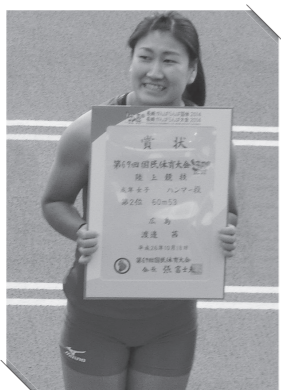 賞状
第69回国民体育大会
陸上競技
成年女子 ハンマー投
第2位 60m53
広島
渡邊 茜
平成26年10月19日
第69回国民体育大会
会長 張富士夫